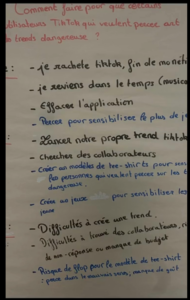 Comment faire pour que certains
utilisateurs TikTok qui veulent percer avec
trends dangereuse ?
: - je rachète tiktok, fin de monét
- je reviens dans le temps (music
- Effacer l'application
- Percer pour sensibiliser le plus de
: - Lancer notre propre trend tiktok
- Chercher des collaborateurs
- Créer un modèles de tee-shirts pour sens
les personnes qui veulent percer sur les t
dangereuse.
- Créer un jeux pour sensibiliser les
jeune
: - Difficultés à créé une trend.
- Difficultés à trouvé des collaborateurs,
de non-réponse ou manque de budget
- Risque de flop pour le modèle de tee-shirt
(passé dans le mauvais sens, manque de goût